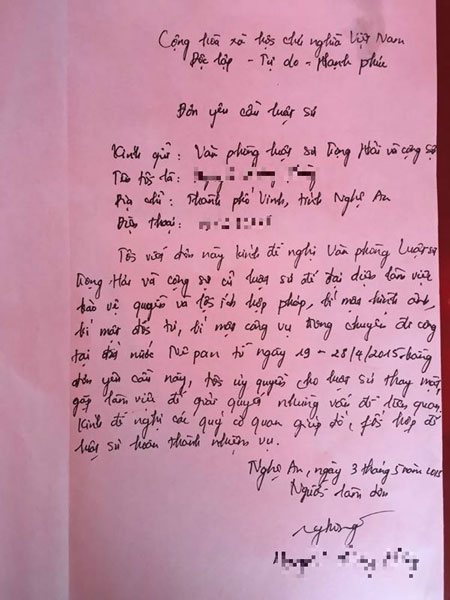 Cộng hòa xã hội chủ nghĩa Việt Nam
Độc lập - Tự do - Hạnh phúc
Đơn yêu cầu luật sư
Kính gửi : Văn phòng luật sư Trọng Hải và cộng sự
Tên tôi là :
Địa chỉ : Thành phố Vinh, tỉnh Nghệ An
Điện thoại :
Tôi viết đơn này kính đề nghị Văn phòng Luật sư
Trọng Hải và cộng sự cử luật sư để đại diện làm việc
bảo vệ quyền và lợi ích hợp pháp, bí mật hình ảnh,
bí mật đời tư, bí mật công vụ trong chuyến đi công
tác đất nước Nê pan từ ngày 19 - 28/4/2015. bằng
đơn yêu cầu này, tôi ủy quyền cho luật sư thay mặt,
gặp làm việc để giải quyết những vấn đề liên quan.
Kính đề nghị các quý cơ quan giúp đỡ, phối hợp để
luật sư hoàn thành nhiệm vụ.
Nghệ An, ngày 3 tháng 5 năm 2015
Người làm đơn